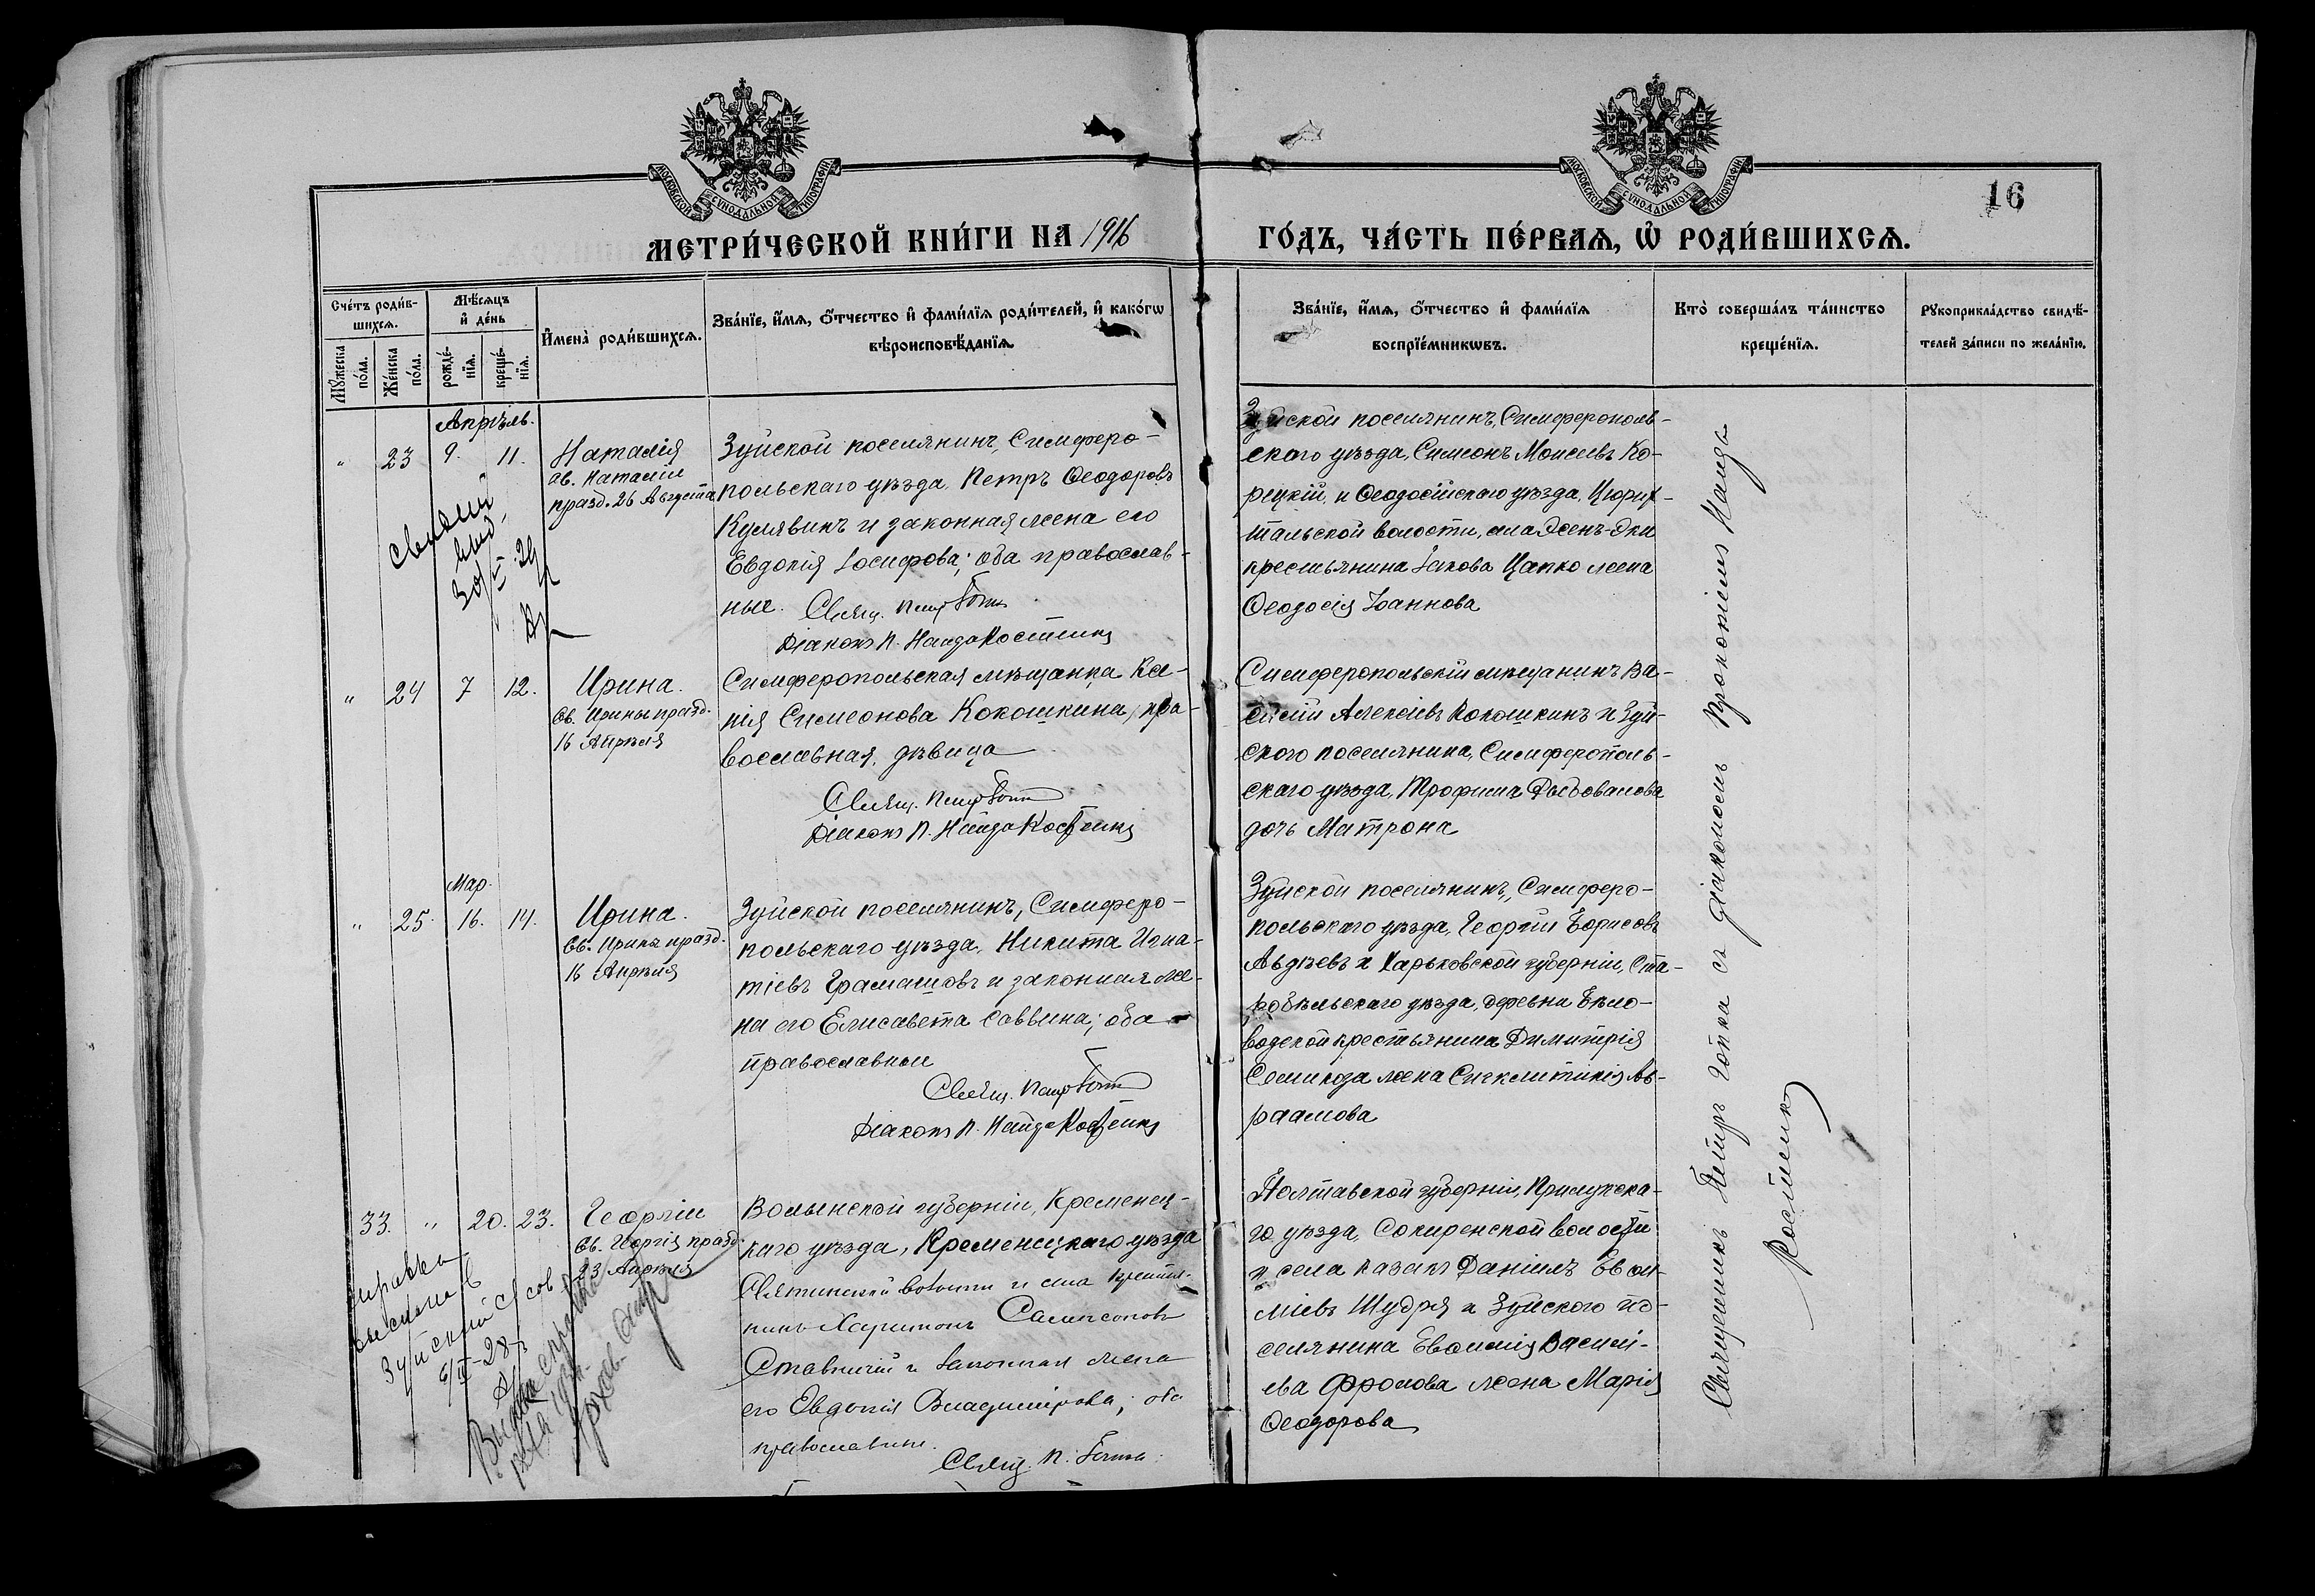 МОСКОВСКОЙ СѴНОДАЛЬНОЙ ТИПОГРАФІИ
МОСКОВСКОЙ СѴНОДАЛЬНОЙ ТИПОГРАФІИ
16
МЕТРИ́ЧЕСКОЙ КНИ́ГИ НА 1916
ГО́ДЪ, ЧА́СТЬ ПЕ́РВАѦ, Ѽ РОДИ́ВШИХСѦ.
Сче́тъ роди́в-
шихсѧ.
Мꙋ́жеска по́ла.
Же́нска по́ла.
Мѣ́сѧцъ
и҆ де́нь
рожде́-
нїѧ.
креще́-
нїѧ.
И҆мена̀ роди́вшихсѧ.
Зва́нїе, и҆́мѧ, ѻ҆́тчество и҆ фами́лїѧ роди́телей, и҆ како́гѡ
вѣроисповѣ́данїѧ.
Зва́нїе, и҆́мѧ, ѻ҆́тчество и҆ фами́лїѧ
воспрїе́мникѡвъ.
Кто̀ соверша́лъ та́инство
креще́нїѧ.
Рꙋкоприкла́дство свидѣ́-
телей за́писи по жела́нїю.
Апрѣль.
" 23 9. 11.
Наталія
св. Наталіи
празд. 26 Августа
Зуйской поселянинъ, Симферо-
польскаго уѣзда, Петръ Ѳеодоровъ
Кулявинъ и законная жена его
Евдокія Іосифова; оба православ-
ные. Свящ.
Діаконъ П. Найда Костенко
Зуйской поселянинъ, Симферополь-
скаго уѣзда, Симеонъ Моисеевъ Ко-
рецкій и Ѳеодосійскаго уѣзда, Цюрих-
тальской волости, села Джень-
крестьянина Іакова Цапко жена
Ѳеодосія Іоаннова
" 24 7 12.
Ирина.
Св. Ирины празд.
16 Апрѣля
Симферопольская мѣщанка Ксе-
нія Симеонова Кокошкина, пра-
вославная, дѣвица
Свящ.
Діаконъ П. Найда Костенко
Симферопольскій мѣщанинъ Ва-
силій Алексіевъ Кокошкинъ и Зуй-
ского поселянина, Симферополь-
скаго уѣзда, Трофима
дочь Матрона
Мар.
" 25. 16. 14.
Ирина.
Св. Ирины празд.
16 Апрѣля
Зуйской поселянинъ, Симферо-
польскаго уѣзда, Никита Игна-
тіевъ Грамашовъ и законная же-
на его Елисавета Саввина; оба
православные
Свящ.
Діаконъ П. Найда Костенко
Зуйской поселянинъ, Симферо-
польскаго уѣзда, Георгій Борисовъ
Авдѣевъ и Харьковской губерніи, Ста-
робѣльскаго уѣзда, деревни Бѣло-
водской крестьянина Димитрія
жена Синклитикія Ав-
раамова
33. " 20. 23.
Георгій
Св. Георгія празд.
23 Апрѣля
Волынской губерніи, Кременец-
каго уѣзда, Кременецкаго уѣзда
волости и села крестья-
нинъ Харитонъ Сампсоновъ
Ставничій и законная жена
его Евдокія Владимірова; оба
православные.
Свящ. П.
Полтавской губерніи, Прилукска-
го уѣзда, Сокиренской волости
и села казакъ Даніилъ Евѳи-
міевъ Шудря и Зуйского по-
селянина Евѳимія Василі-
ева Фролова жена Марія
Ѳеодорова
справка
выслана в
Зуйский с/сов
Священникъ Петръ съ діакономъ Прокопіемъ Найда
Костенко